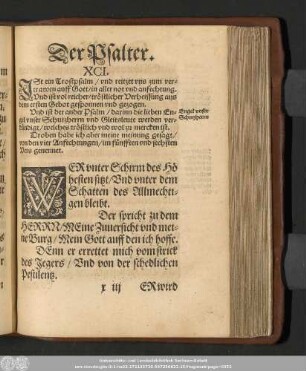 Der Psalter.
XCI.
IST ein Trostpsalm / vnd reitzet vns zum ver-
trawen auff Gott / in aller not vnd anfechtung.
Vnd ist vol reicher / tröstlicher Verheissung aus
dem ersten Gebot gesponnen vnd gezogen.
Vnd ist der ander Psalm / darinn die lieben En-
gel vnser Schutzherrn vnd Gleitsleute werden ver-
kündigt / welches tröstlich vnd wol zu mercken ist.
Droben habe ich aber meine meinung gesagt /
von den vier Anfechtungen / im fünfften vnd sechsten
Vers genennet.
Engel vnsere
Schutzherrn
WER vnter Schirm des Hö-
hesten sitzt / Vnd vnter dem
Schatten des Allmechti-
gen bleibt.
Der spricht zu dem
HERRN / MEine Zuuersicht vnd mei-
ne Burg / Mein Gott auff den ich hoffe.
DEnn er errettet mich vom strick
des Jegers / Vnd von der schedlichen
Pestilentz.
x iij ER wird